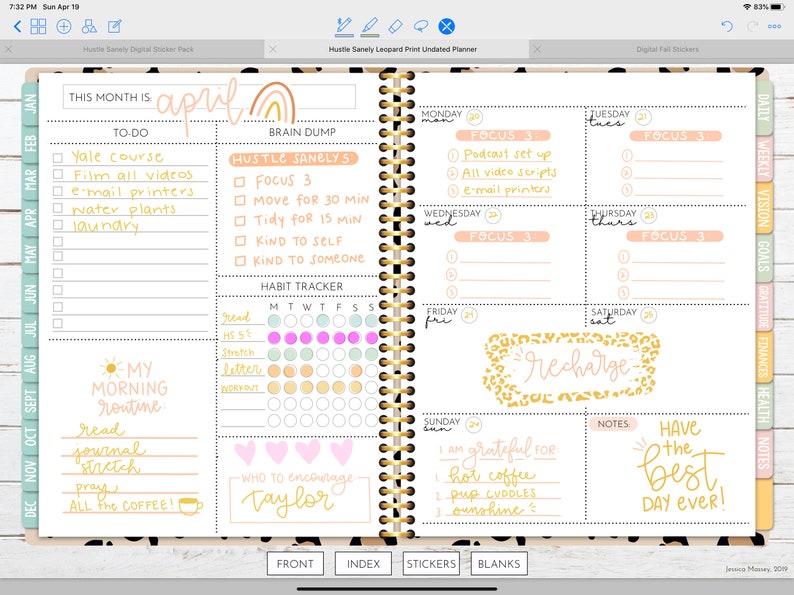 7:32 PM Sun Apr 19
83%
Hustle Sanely Digital Sticker Pack
Hustle Sanely Leopard Print Undated Planner
Digital Fall Stickers
THIS MONTH IS: april
TO-DO
Yale course
Film all videos
e-mail printers
water plants
laundry
MY
MORNING
routine:
read
journal
stretch
pray
ALL the COFFEE!
BRAIN DUMP
HUSTLE SANELY 5
FOCUS 3
MOVE FOR 30 MIN
TIDY FOR 15 MIN
KIND TO SELF
KIND TO SOMEONE
HABIT TRACKER
M T W T F S S
read
HS 5
stretch
letter
WORKOUT
WHO TO encourage
TAYlOR
MONDAY 20
mon
FOCUS 3
1 Podcast set up
2 All video scripts
3 e-mail printers
TUESDAY 21
tues
FOCUS 3
1
2
3
WEDNESDAY 22
wed
FOCUS 3:
1
2
3
THURSDAY 23
thurs
FOCUS 3:
1
2
3
FRIDAY 24
fri
SATURDAY 25
sat
recharge
SUNDAY
sun
I AM grateful FOR:
1. hot coffee
2. pup cuddles
3 sunshine
NOTES:
HAVE
the
best
DAY EVER!
JAN
FEB
MAR
APR
MAY
JUN
JUL
AUG
SEPT
OCT
NOV
DEC
DAILY
WEEKLY
VISION
GOALS
GRATITUDE
FINANCES
HEALTH
NOTES
FRONT
INDEX
STICKERS
BLANKS
Jessica Massey, 2019